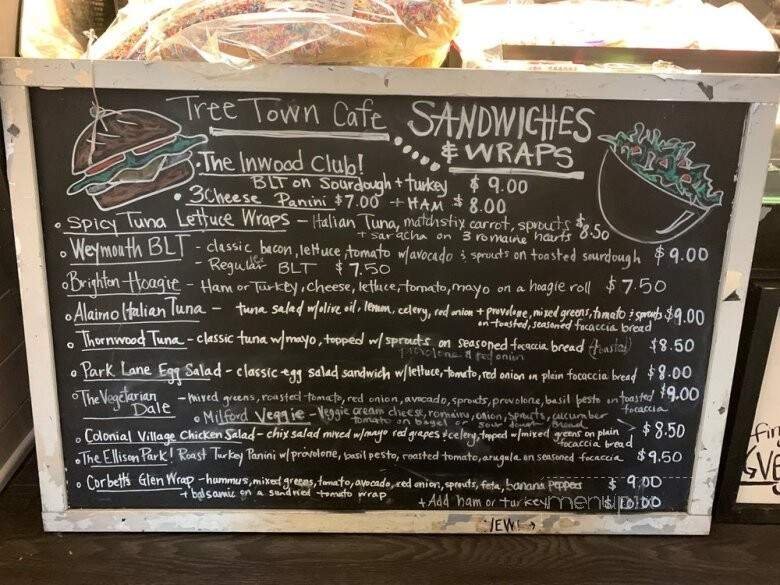 Tree Town Cafe SANDWICHES
& WRAPS
• The Inwood Club!
BLT on Sourdough + turkey $9.00
• 3 Cheese Panini $7.00 + HAM $8.00
• Spicy Tuna Lettuce Wraps - Italian Tuna, matchstix carrot, sprouts $8.50
+ saracha on 3 romaine hearts
• Weymouth BLT - classic bacon, lettuce, tomato w/avocado & sprouts on toasted sourdough $9.00
- Regular BLT $7.50
• Brighton-Hoagie - Ham or Turkey, cheese, lettuce, tomato, mayo on a hoagie roll $7.50
• Alaimo Italian Tuna - tuna salad w/olive oil, lemon, celery, red onion + provolone, mixed greens, tomato & sprouts $9.00
on toasted, seasoned focaccia bread
• Thornwood Tuna - classic tuna w/mayo, topped w/sprouts on seasoned focaccia bread (toasted) $8.50
provolone & red onion
• Park Lane Egg Salad - classic egg salad sandwich w/lettuce, tomato, red onion on plain focaccia bread $8.00
• The Vegetarian - mixed greens, roasted tomato, red onion, avocado, sprouts, provolone, basil pesto on toasted $9.00
Dale focaccia
• Milford Veggie - Veggie cream cheese, romaine, onion, sprouts, cucumber
tomato on bagel or sour dough bread
• Colonial Village Chicken Salad - chix salad mixed w/mayo red grapes & celery, topped w/mixed greens on plain $8.50
focaccia bread
• The Ellison Park! Roast Turkey Panini w/provolone, basil pesto, roasted tomato, arugula on seasoned focaccia $9.50
• Corbett's Glen Wrap - hummus, mixed greens, tomato, avocado, red onion, sprouts, feta, banana peppers $9.00
+ balsamic on a sundried tomato wrap
+ Add ham or turkey